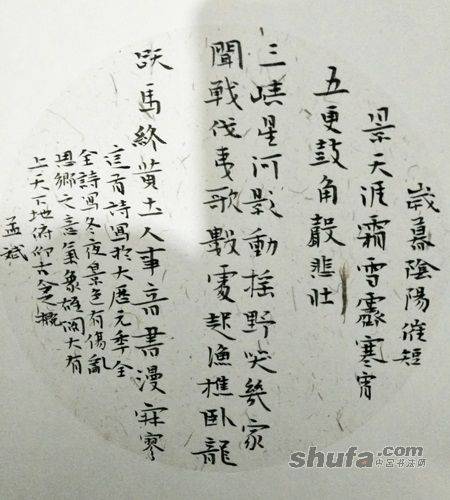 歲暮陰陽催短
景天涯霜雪霽寒宵
五更鼓角聲悲壯
三峽星河影動搖野哭幾家
聞戰伐夷歌數處起漁樵臥龍
跃馬終黄土人事音書漫寂寥
這首詩寫於大歷元年全
全詩寫冬夜景色有傷亂
思鄉之意氣象雄闊大有
上天下地俯仰古今之概
孟斌
shufa.com
中国书法网